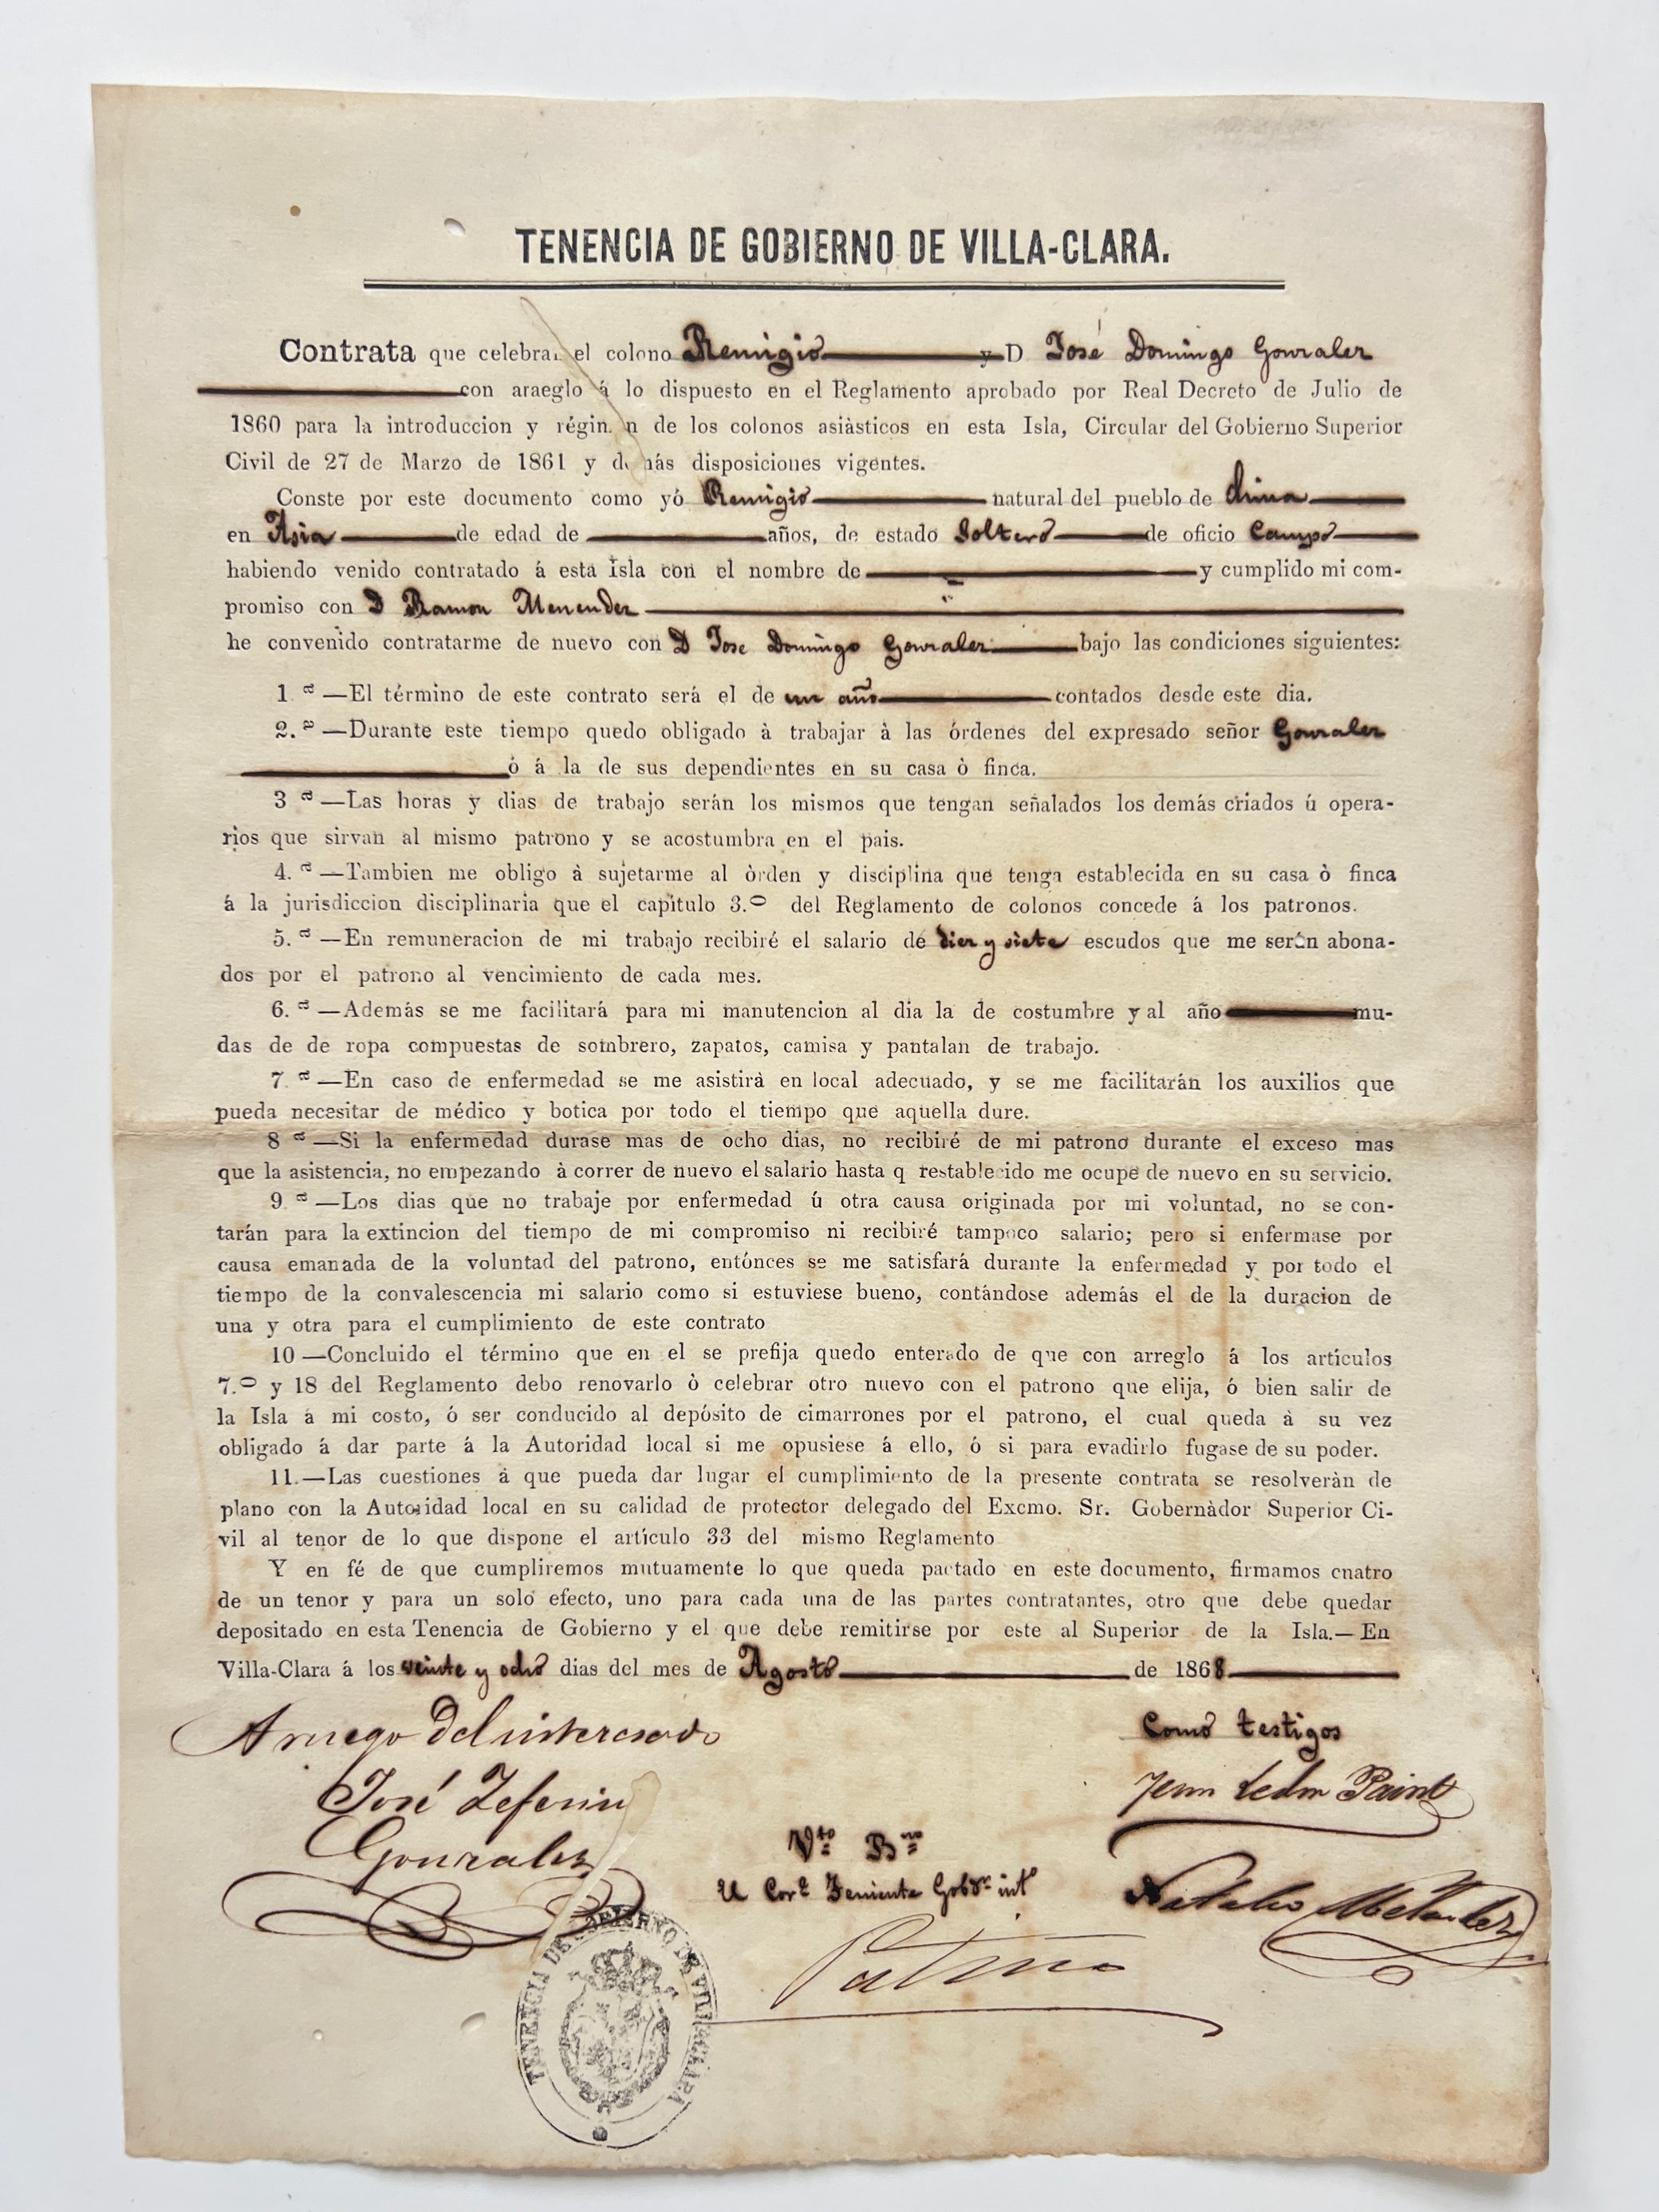 TENENCIA DE GOBIERNO DE VILLA-CLARA.
Contrata que celebran el colono Remigio y D José Domingo Gonzalez
con araeglo á lo dispuesto en el Reglamento aprobado por Real Decreto de Julio de
1860 para la introduccion y régimen de los colonos asiàsticos en esta Isla, Circular del Gobierno Superior
Civil de 27 de Marzo de 1861 y demás disposiciones vigentes.
Conste por este documento como yó Remigio natural del pueblo de China
en Asia de edad de años, de estado Soltero de oficio Campo
habiendo venido contratado á esta Isla con el nombre de y cumplido mi com-
promiso con D Ramon Menendez
he convenido contratarme de nuevo con D Jose Domingo Gonzalez bajo las condiciones siguientes:
1.ª—El término de este contrato será el de un año contados desde este dia.
2.ª—Durante este tiempo quedo obligado à trabajar à las órdenes del expresado señor Gonzalez
ó á la de sus dependientes en su casa ò finca.
3 ª—Las horas y dias de trabajo serán los mismos que tengan señalados los demás criados ú opera-
rios que sirvan al mismo patrono y se acostumbra en el pais.
4.ª—Tambien me obligo à sujetarme al òrden y disciplina que tenga establecida en su casa ò finca
á la jurisdiccion disciplinaria que el capitulo 3.º del Reglamento de colonos concede á los patronos.
5.ª—En remuneracion de mi trabajo recibiré el salario de diez y siete escudos que me serán abona-
dos por el patrono al vencimiento de cada mes.
6.ª—Además se me facilitará para mi manutencion al dia la de costumbre y al año mu-
das de de ropa compuestas de sombrero, zapatos, camisa y pantalan de trabajo.
7 ª—En caso de enfermedad se me asistirà en local adecuado, y se me facilitarán los auxilios que
pueda necesitar de médico y botica por todo el tiempo que aquella dure.
8 ª—Si la enfermedad durase mas de ocho dias, no recibiré de mi patrono durante el exceso mas
que la asistencia, no empezando à correr de nuevo el salario hasta q restablecido me ocupe de nuevo en su servicio.
9 ª—Los dias que no trabaje por enfermedad ú otra causa originada por mi voluntad, no se con-
tarán para la extincion del tiempo de mi compromiso ni recibiré tampoco salario; pero si enfermase por
causa emanada de la voluntad del patrono, entónces se me satisfará durante la enfermedad y por todo el
tiempo de la convalescencia mi salario como si estuviese bueno, contándose además el de la duracion de
una y otra para el cumplimiento de este contrato
10 —Concluido el término que en el se prefija quedo enterado de que con arreglo á los artículos
7.º y 18 del Reglamento debo renovarlo ò celebrar otro nuevo con el patrono que elija, ó bien salir de
la Isla á mi costo, ó ser conducido al depósito de cimarrones por el patrono, el cual queda à su vez
obligado á dar parte á la Autoridad local si me opusiese á ello, ó si para evadirlo fugase de su poder.
11.—Las cuestiones à que pueda dar lugar el cumplimiento de la presente contrata se resolveràn de
plano con la Autoridad local en su calidad de protector delegado del Excmo. Sr. Gobernàdor Superior Ci-
vil al tenor de lo que dispone el artículo 33 del mismo Reglamento
Y en fé de que cumpliremos mutuamente lo que queda pactado en este documento, firmamos cuatro
de un tenor y para un solo efecto, uno para cada una de las partes contratantes, otro que debe quedar
depositado en esta Tenencia de Gobierno y el que debe remitirse por este al Superior de la Isla.—En
Villa-Clara á los veinte y ocho dias del mes de Agosto de 1868
A ruego del interesado
Como testigos
José Zeferino
Gonzalez
Vto Bno
El Corl Teniente Gobor intº
Natalio
Patiño
TENENCIA DE GOBIERNO DE VILLA-CLARA